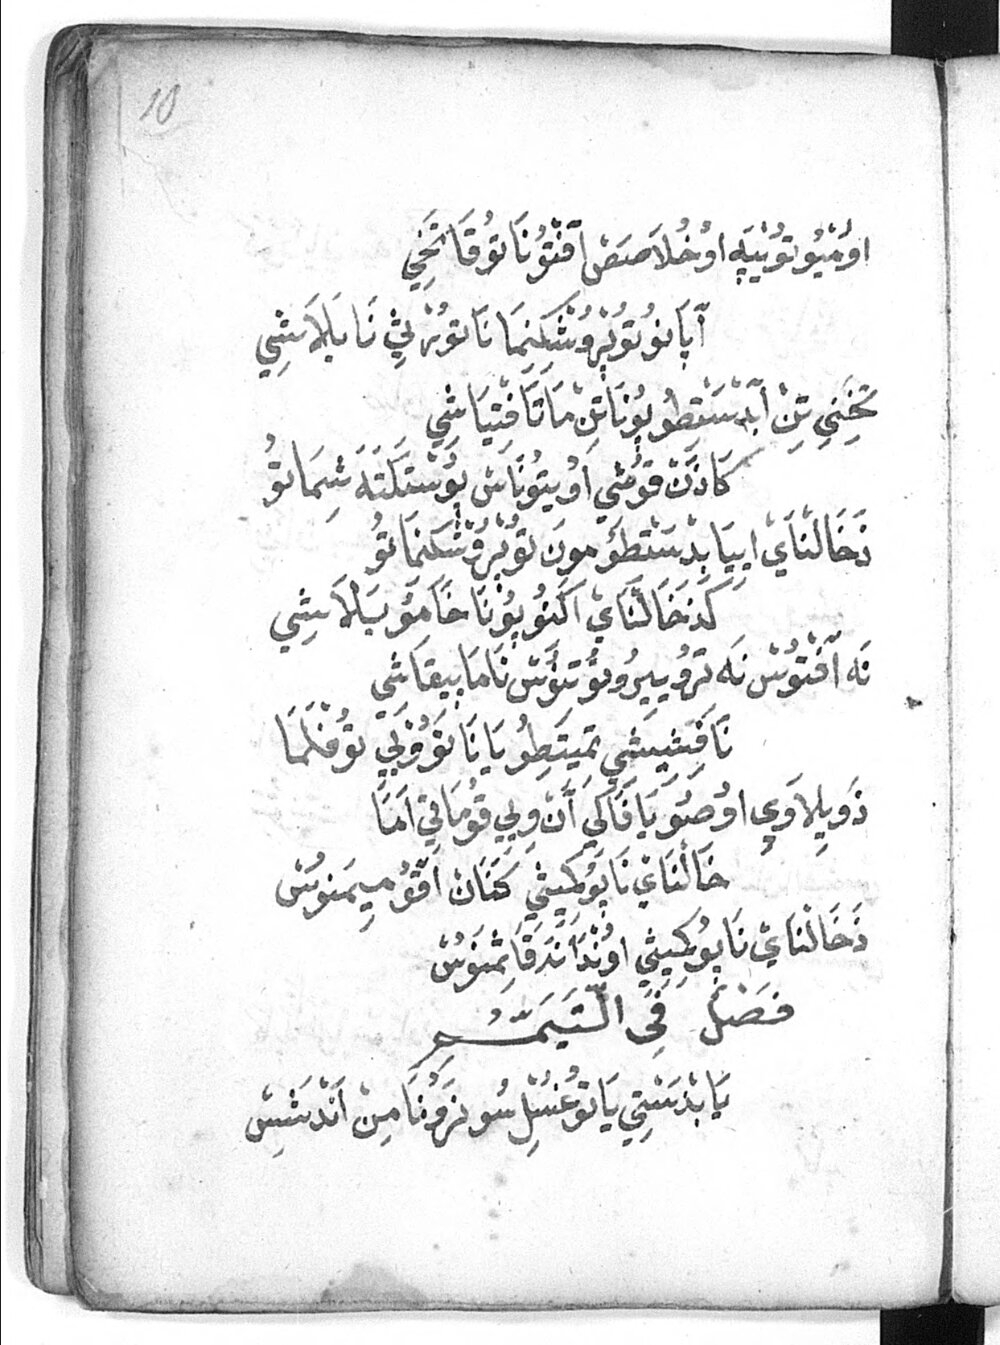 10
اوُمْيُو تُونِيَه اوْخُلاَصَصْ آفْتُونَا تُوقَا تَخِي
آپَانُو تُو پْرُوشْكِنِمَا نَا تُورْثِيْ نَا پَلاَشِي
تَخِنِي تِنْ آبْدَسْتِطُو پُونَا تِنْ مَاتَا فْتِيَاشِي
كَاذَنْ قَوُشِي اوُيتُونَاسْ پُوسْتَكَتَه شِمَا تُو
ذَخَالْنَايْ اِپِيَا بْدَسْتِطُو مُونَ تُو پْرُوشْكِنِمَا تُو
كَذَخَالْنَايْ اَكِنُو پُونَا خَامُو پَلاَشِي
نَه آفْتُوسْ نَه تْرُوپِيرُو تُو تِنُوسْ نَامَا پِيقَاشِي
نَا فِشِيشِي تَمِيتِطُو يَا نَا تَوُرْبِي تُو فْلَمَا
ذَوِپِلاَوِي اوُصُو يَا فَاكِي آنْ وِبِي قُومَاتِي اَمَا
خَالْنَايْ نَا پُوكِيثِي كَنَانْ اَفْقُو مِيمَنُوسْ
ذَخَالْنَايْ نَا پُوكِيثِي اوُنْدَانْدَقَاثِمْنُوسْ
فَصْلٌ فِي التَّيَمُّمِ
يَا بْدَسْتِي يَا تُو غُسُلْ سُو نَرَوُنَا مِنْ اَنْدَشِسْ